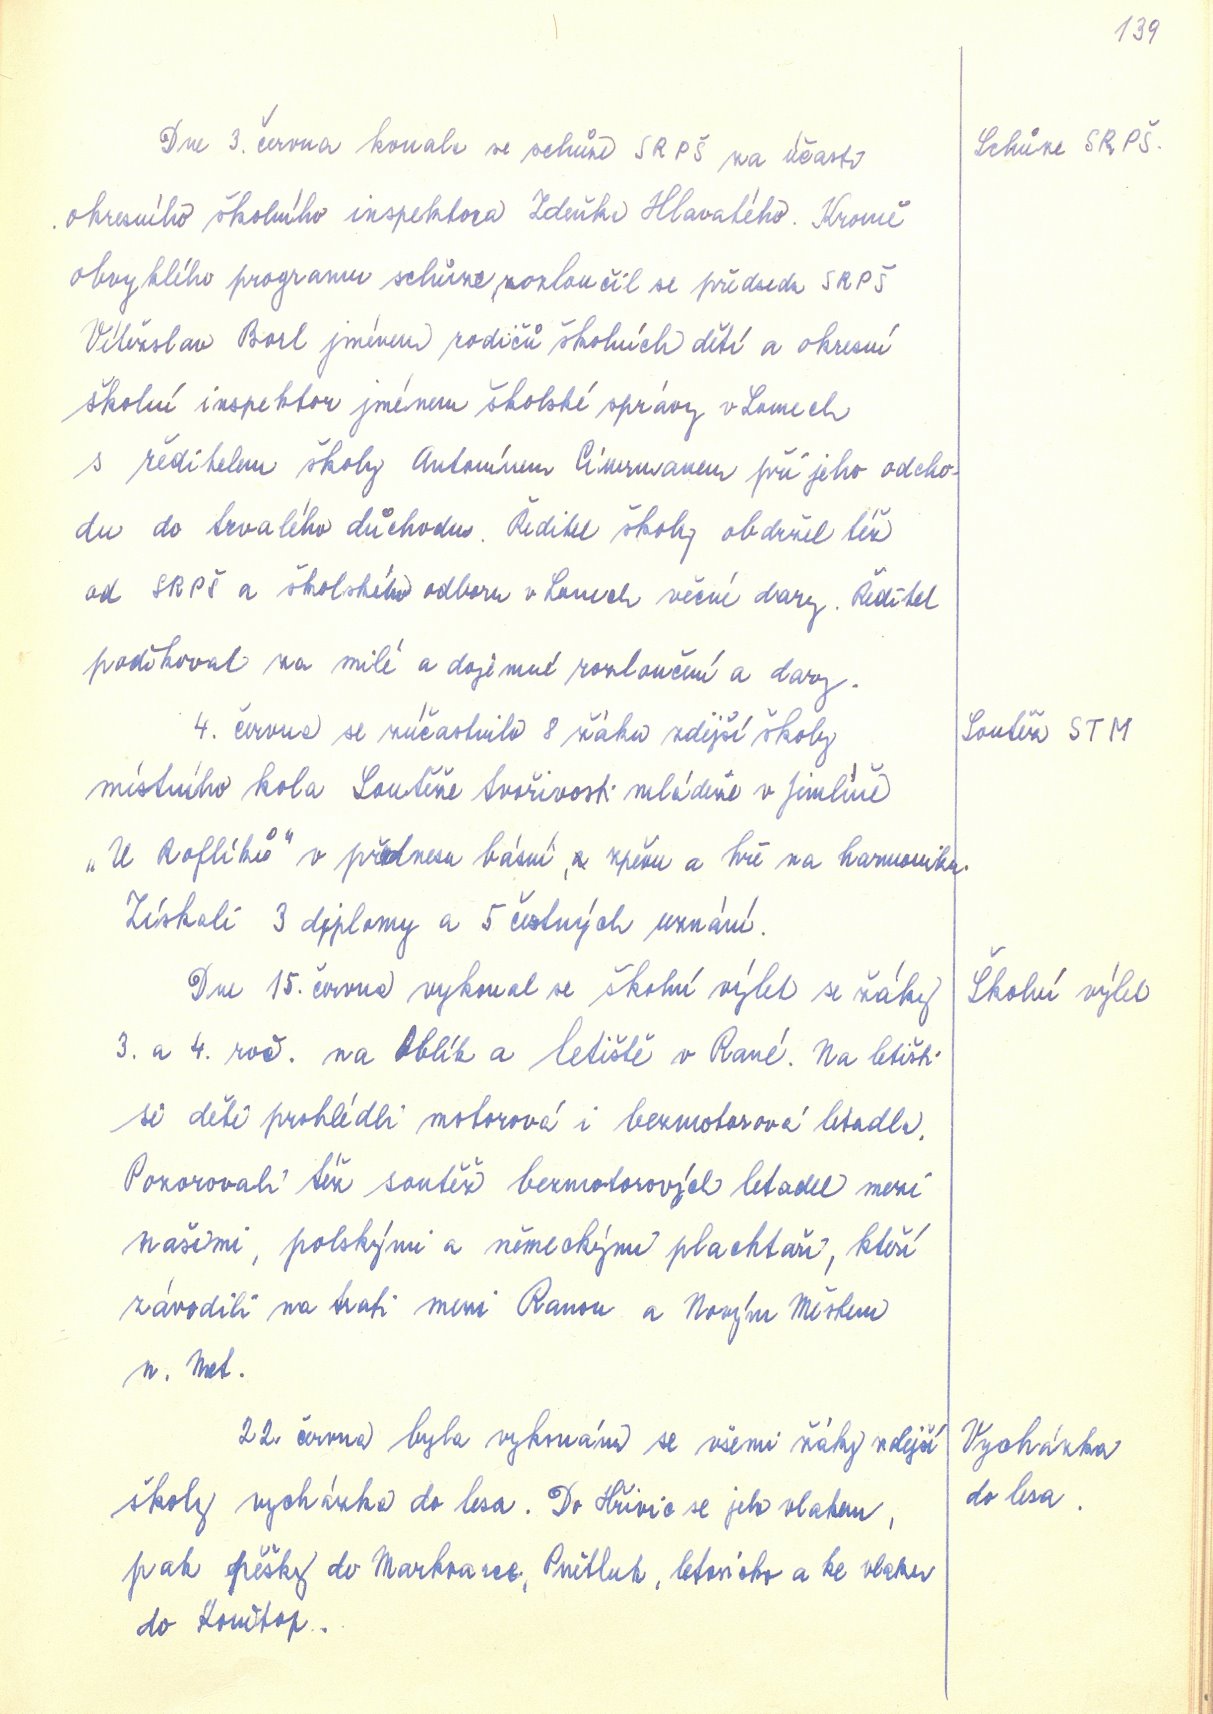 139
Dne 3. června konala se schůze SRPŠ za účasti
Schůze SRPŠ.
okresního školního inspektora Zdeňka Hlavatého. Kromě
obvyklého programu schůze, rozloučil se předseda SRPŠ
Vítězslav Borl jménem rodičů školních dětí a okresní
školní inspektor jménem školské správy v Lounech
s ředitelem školy Antonínem Cimrmanem při jeho odcho-
du do trvalého důchodu. Ředitel školy obdržel též
od SRPŠ a školského odboru v Lounech věcné dary. Ředitel
poděkoval za milé a dojemné rozloučení a dary.
4. června se zúčastnilo 8 žáků zdejší školy
Soutěž STM
místního kola Soutěže tvořivosti mládeže v Jimlíně
„U Koflíků" v přednesu básní, zpěvu a hře na harmoniku.
Získali 3 diplomy a 5 čestných uznání.
Dne 15. června vykonal se školní výlet se žáky
Školní výlet
3. a 4. roč. na Oblík a letiště v Rané. Na letišti
si děti prohlédli motorová i bezmotorová letadla.
Pozorovali též soutěž bezmotorových letadel mezi
našimi, polskými a německými plachtaři, kteří
závodili na trati mezi Ranou a Novým Městem
n. Met.
22. června byla vykonána se všemi žáky zdejší
Vycházka
školy vycházka do lesa. Do Hřivic se jelo vlakem,
do lesa.
pak pěšky do Markvarce, Pnětluk, letovisko a ke vlaku
do Konětop.